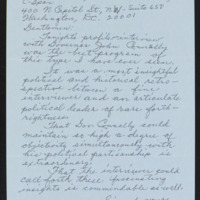 C-Span
400 N. Capitol St., N.W. - Suite 650
Washington, D.C. 20001
Gentlemen:
Tonight's profile/interview
with Governor John Connally
was the best program of
this type I have ever seen.
It was a most insightful
political and historical retro-
spective between a fine
interviewer and an articulate
political leader of rare forth-
rightness.
That Gov. Connally could
maintain so high a degree of
objectivity simultaneously with
his political partisanship is
extraordinary.
That the interviewer could
call forth these fascinating
insights is commendable as well.